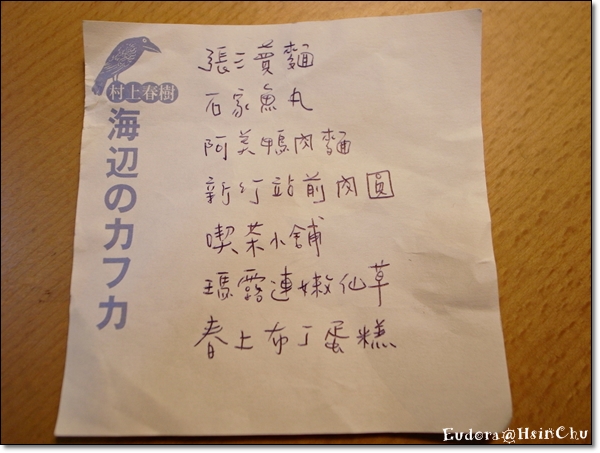 村上春樹
海辺のカフカ
張三賣麵
石家魚丸
阿美鴨肉麵
新竹站前肉圓
喫茶小舖
瑪露連嫩仙草
春上布丁蛋糕
Eudora@HsinChu